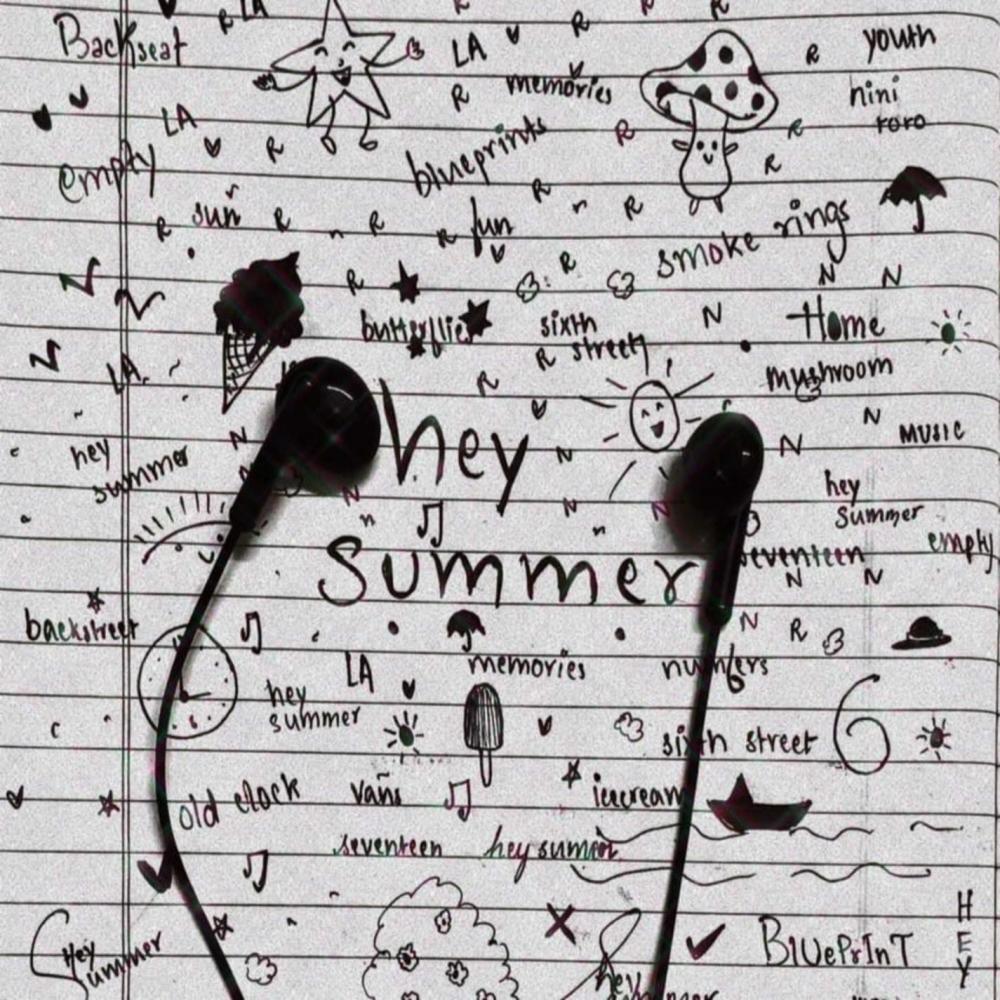 LA
Backseat
LA
youth
memories
nini
roro
LA
blueprints
empty
sun
fun
smoke rings
butterflies
sixth
street
Home
LA
mushroom
hey
summer
hey
MUSIC
hey
summer
summer
seventeen
empty
backstreet
LA
memories
numbers
hey
summer
sixth street
6
old clock
vans
icecream
seventeen
hey summer
Hey
summer
BluePrINT
HEY
hey
summer